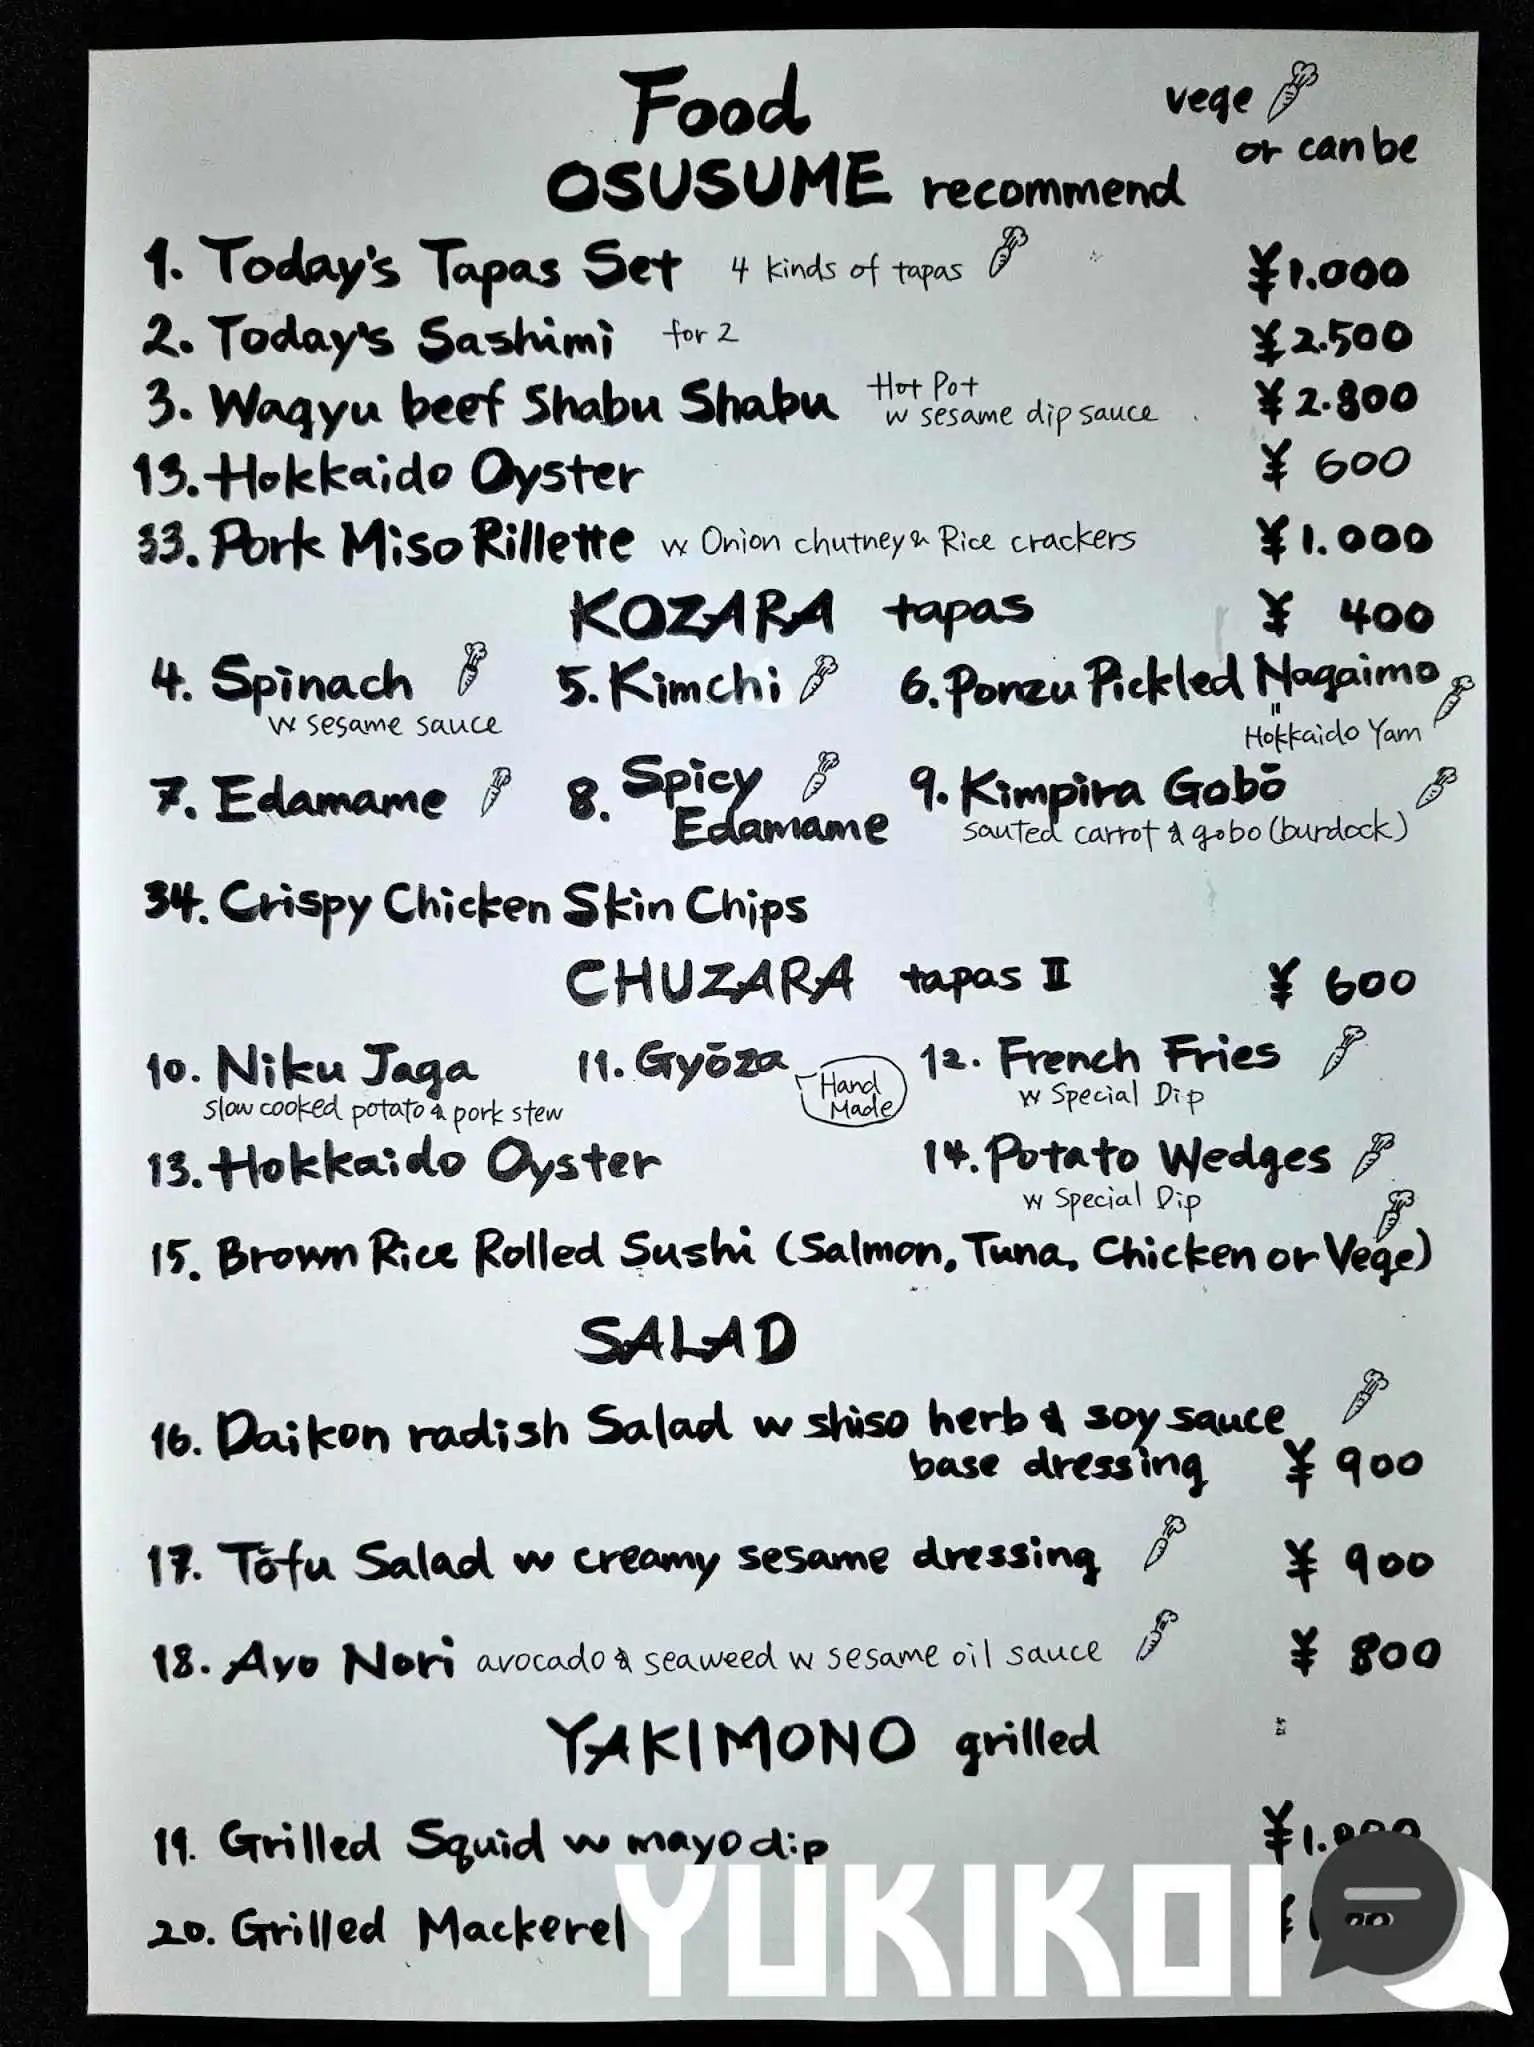 Food
vege
or can be
OSUSUME recommend
1. Today's Tapas Set 4 kinds of tapas ¥1.000
2. Today's Sashimi for 2 ¥2.500
3. Wagyu beef Shabu Shabu Hot Pot ¥2.800
w sesame dip sauce
13. Hokkaido Oyster ¥ 600
33. Pork Miso Rillette w Onion chutney & Rice crackers ¥1.000
KOZARA tapas ¥ 400
4. Spinach 5. Kimchi 6. Ponzu Pickled Nagaimo
w sesame sauce
=
Hokkaido Yam
7. Edamame 8. Spicy 9. Kimpira Gobō
Edamame
sauted carrot & gobo (burdock)
34. Crispy Chicken Skin Chips
CHUZARA tapas II ¥ 600
10. Niku Jaga 11. Gyōza 12. French Fries
slow cooked potato & pork stew
Hand
Made
w Special Dip
13. Hokkaido Oyster 14. Potato Wedges
w Special Dip
15. Brown Rice Rolled Sushi (Salmon, Tuna, Chicken or Vege)
SALAD
16. Daikon radish Salad w shiso herb & soy sauce
base dressing ¥ 900
17. Tōfu Salad w creamy sesame dressing ¥ 900
18. Avo Nori avocado & seaweed w sesame oil sauce ¥ 800
YAKIMONO grilled
19. Grilled Squid w mayo dip
20. Grilled Mackerel
YUKIKOI